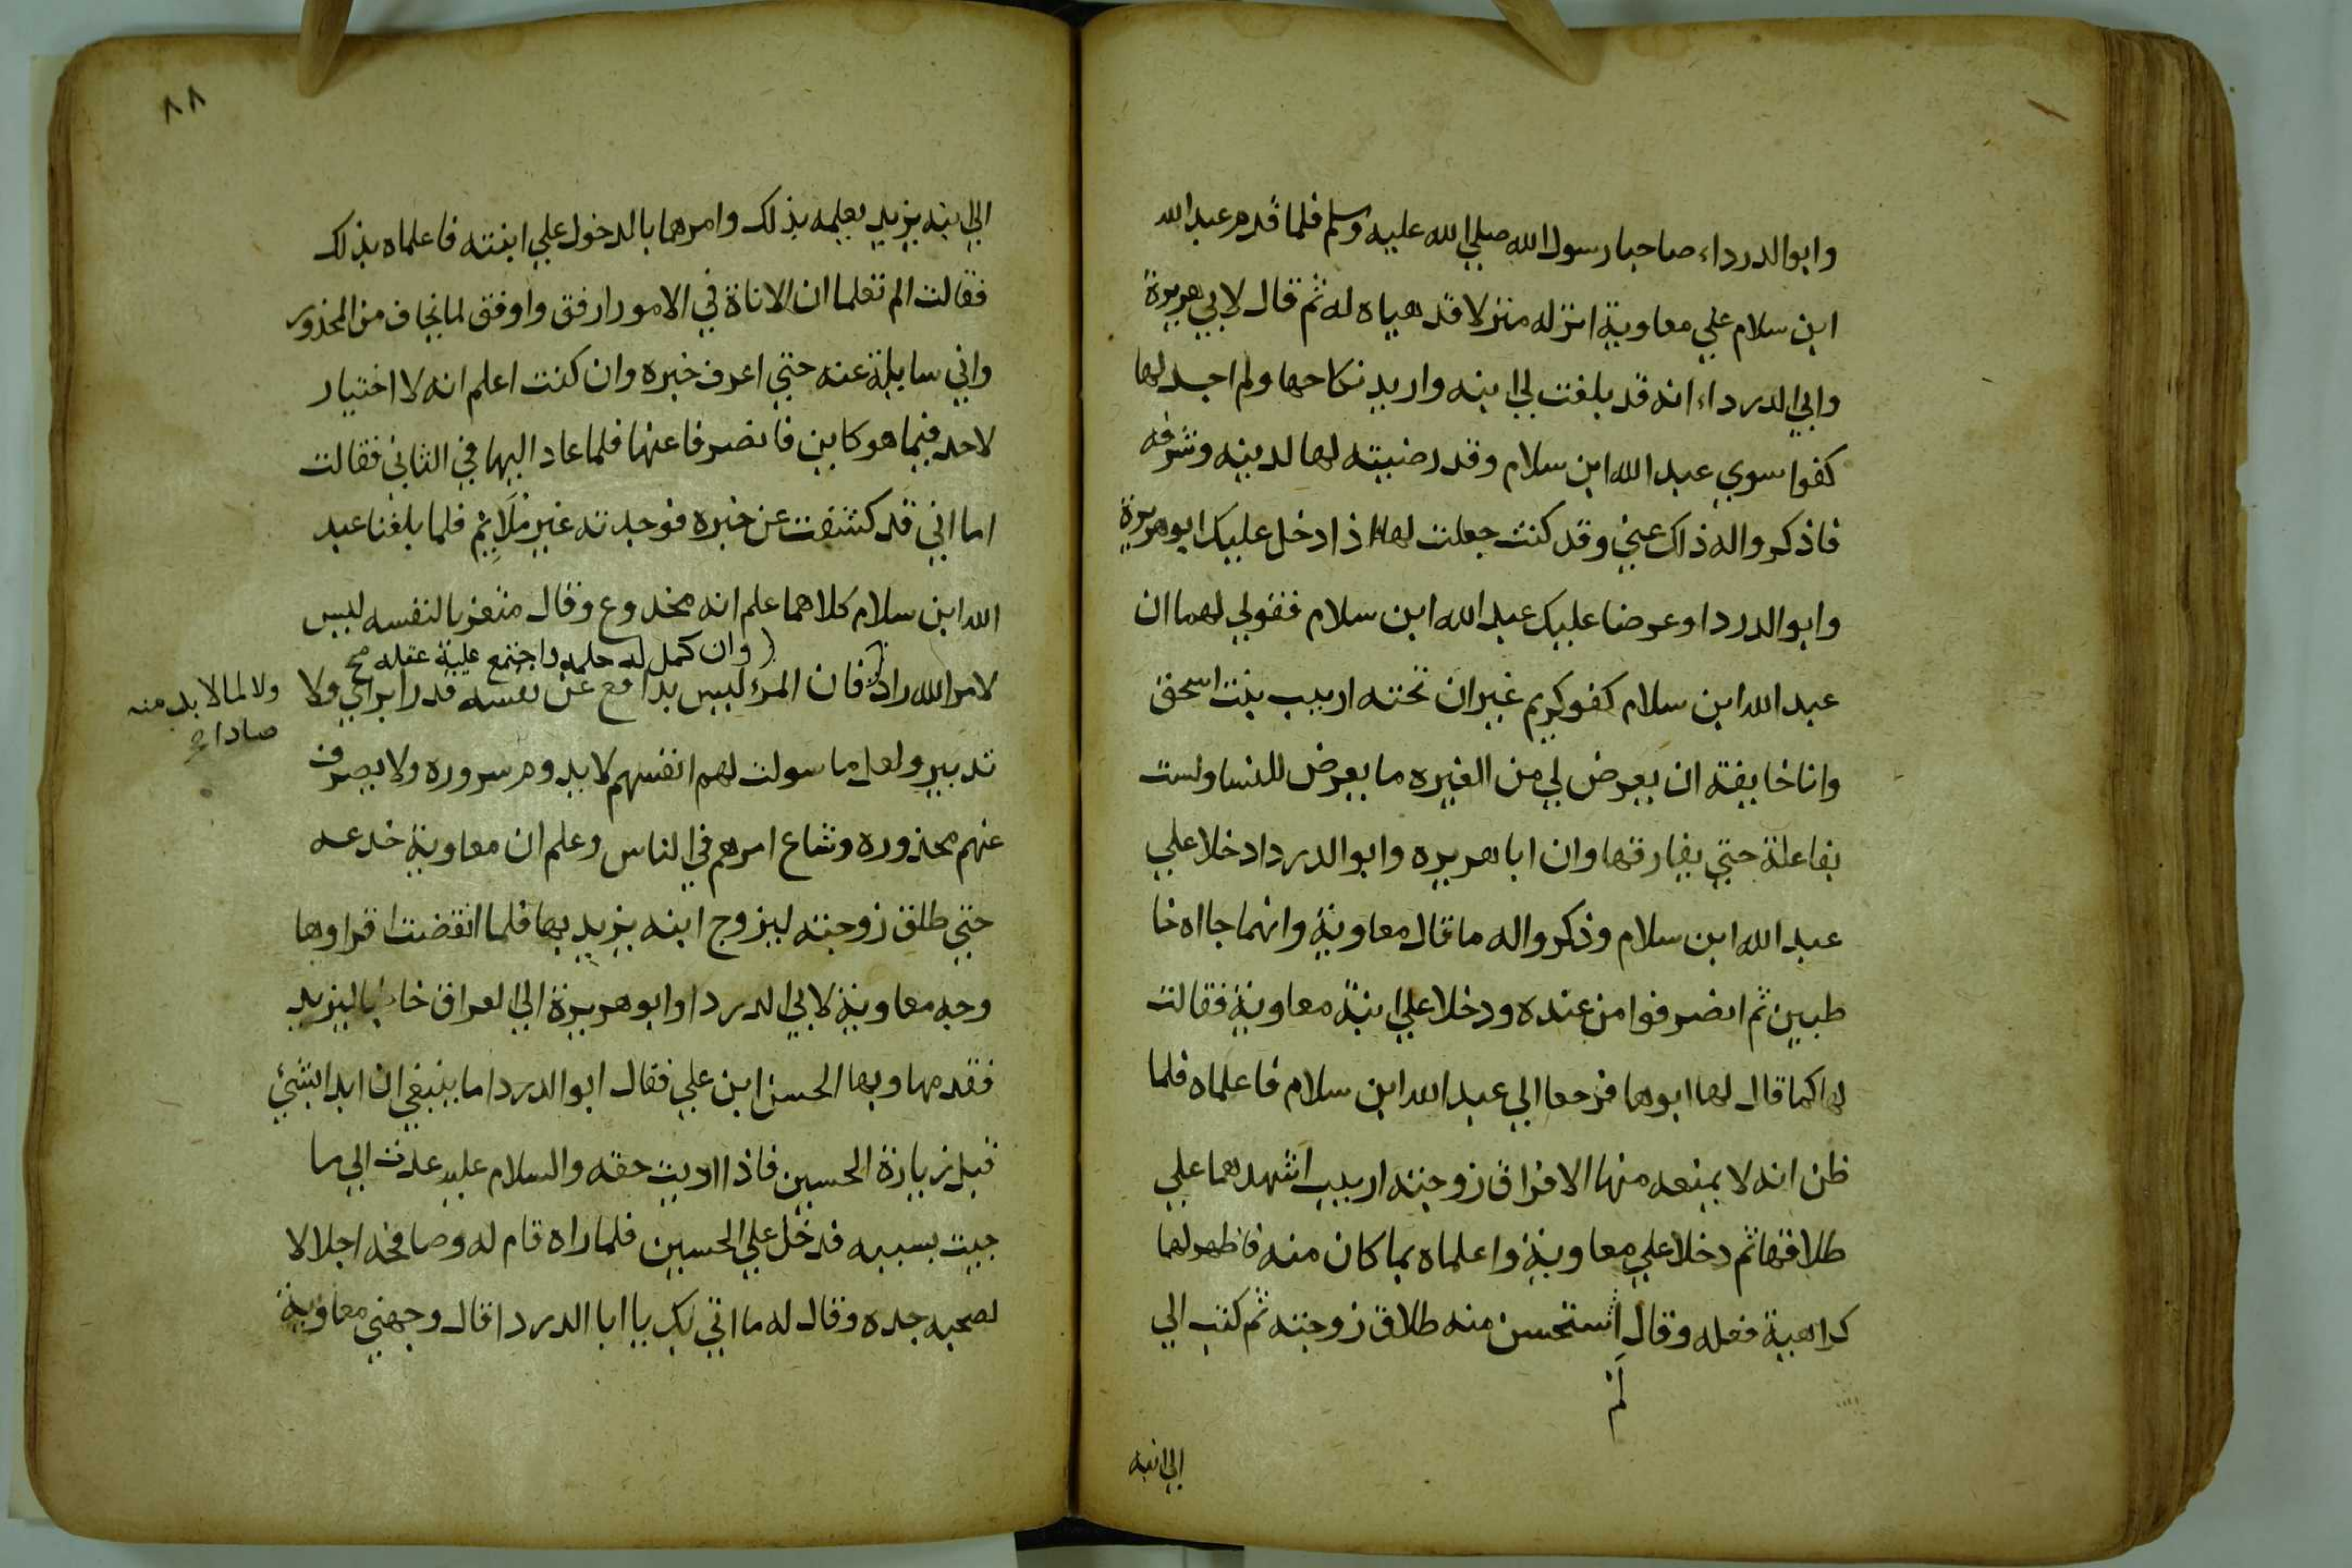 وابوالدرداء صاحبا رسول الله صلي الله عليه وسلم فلما قدم عبدالله
ابن سلام علي معاوية انزله منزلا قد هياه له ثم قال لابي هريرة
وابي الدرداء انه قد بلغت لي ابنه واريد نكاحها ولم اجد لها
كفوا سوي عبد الله ابن سلام وقد رضيته لها لدينه وشرفه
فاذكرواله ذاك عني وقد كنت جعلت لها اذا دخل عليك ابوهريرة
وابو الدردا وعرضا عليك عبد الله ابن سلام فقولي لهما ان
عبد الله ابن سلام كفو كريم غيران تحته اريب بنت اسحق
وانا خايفة ان يعرض لي من الغيره ما يعرض للنسا ولست
بفاعلة حتي يفارقها وان ابا هريره وابو الدردا دخلا علي
عبد الله ابن سلام وذكرواله ما قال معاوية وانهما جااه خا
طبين ثم انصرفوا من عنده ودخلا علي ابنة معاوية فقالت
لها كما قال لها ابوها فرجعا الي عبد الله ابن سلام فاعلماه فلما
ظن انه لا يمنعه منها الا فراق زوجته اريب اشهدهما علي
طلاقها ثم دخلا علي معاوية واعلماه بما كان منه فاظهر لهما
كراهية فعله وقال استحسن منه طلاق زوجته ثم كتب الي
لم
الي ابنه
٨٨
الي ابنه يزيد يعلمه بذلك وامرهما بالدخول علي ابنته فاعلماه بذلك
فقالت الم تعلما ان الاناة في الامور ارفق واوفق لما يخاف من المحذور
واني سايلة عنه حتي اعرف خبره وان كنت اعلم انه لا اختيار
لاحد فيما هو كاين فانصرفا عنها فلما عاد اليها في الثاني فقالت
اما اني قد كشفت عن خبره فوجدته غير ملايم فلما بلغنا عبد
الله ابن سلام كلاهما علم انه مخدوع وقال متعزيا لنفسه ليس
وان كمل له حلمه واجتمع عليه عقله صح
لامر الله راد فان المرء ليس بدافع عن نفسه قدرا براي ولا
ولا لما لابد منه
صادا صح
تدبير ولعل ما سولت لهم انفسهم لا يدوم سروره ولا يصرف
عنهم محذوره وشاع امرهم في الناس وعلم ان معاوية خدعه
حتي طلق زوجته ليزوج ابنه يزيد بها فلما انقضت اقراوها
وجه معاوية لابي الدردا وابو هريرة الي العراق خاطبا ليزيد
فقدمها وبها الحسن ابن علي فقال ابو الدردا ما ينبغي ان ابدا بشئ
قبل زيارة الحسين فاذا اديت حقه والسلام عليه عدت الي ما
جيت بسببه فدخل علي الحسين فلما راه قام له وصافحه اجلالا
لصحبه جده وقال له ما اتي بك يا ابا الدردا قال وجهني معاوية